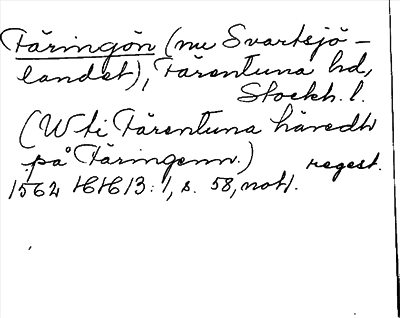 Täringön (nu Svartsjö-
landet), Färentuna hd,
Stockh. l.
(W ti Färentuna häredh
på Färingenn.) regest.
1562 HH 13:1, s. 58, not 1.